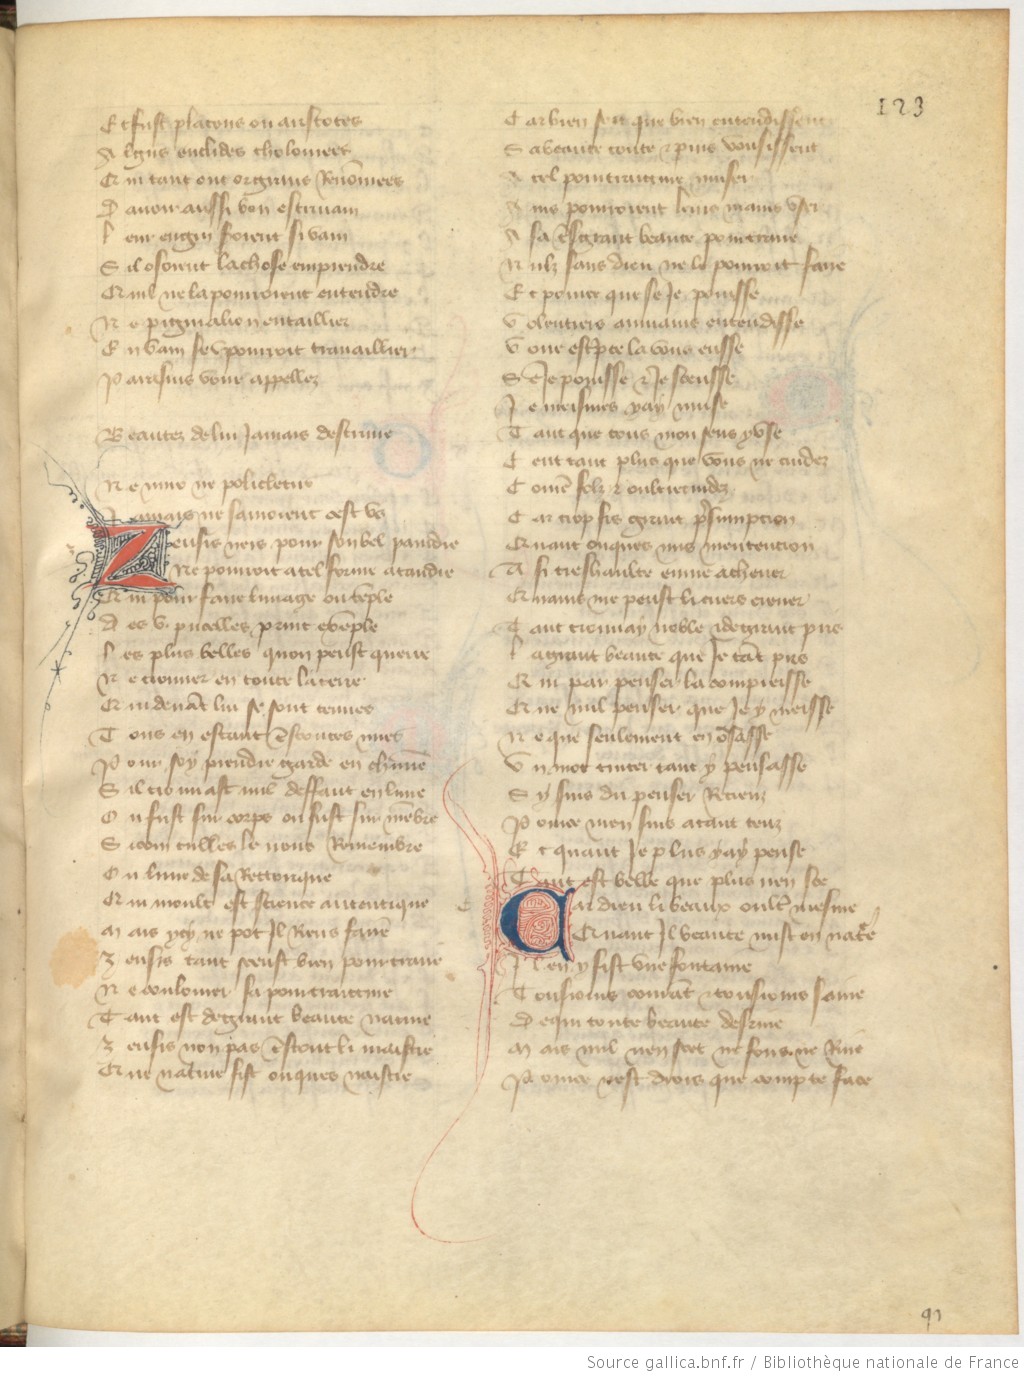 123
Et fust platons ou aristotes
Algus euclides tholomees
Qui tant ont or grans Renommees
Davoir aussi bon escrivain
Leur engin seroient si vain
Sil osoient la chose emprendre
Quil ne la pourroient entendre
Ne pigmalion entaillier
En vain se pourroit travaillier
Parrasius voire appellez
Beautez de lui Jamais descrivre
Ne mire ne policletus
Jamais ne savroient cest us
Zeusis neis pour son bel paindre
Ne pourroit a tel forme ataindre
Qui pour faire limage ou temple
Des v. pucelles print exemple
Les plus belles quon peust querre
Ne trouver en toute la terre
Qui devant lui se sont tenues
Tous en estant trestoutes nues
Pour soy prendre garde en chascune
Sil trouvast nul deffaut en lune
Ou fust sur corps ou fust sur membre
Si com tulles le nous Remembre
Ou livre de sa Rectorique
Qui moult est science autentique
Mais ycy ne pot Il Riens faire
Zeusis tant sceust bien pourtraire
Ne coulourer sa pourtraicture
Tant est de grant beaute nature
Zeusis non pas trestout li maistre
Que nature fist onques naistre
Car bien soit que bien entendissent
Sa beaute toute et puis voulsissent
A tel pourtraicture muser
Ains pourroient leurs mains user
A sa tresgrant beaute pourtraire
Nulz fans dieu ne le pourroit faire
Et pource que se Je peusse
Voulentiers au mains entendisse
Voire escripte la vous eusse
Se Je peusse et Je sceusse
Je meismes yay muse
Tant que tous mon sens yuse
Cent tant plus que vous ne cuidez
Comme folz et oultrecuidez
Car trop fis grant presumpcion
Quant onques mis mentencion
A si treshaulte euvre achever
Quains me peust li cuers crever
Tant trouvay noble et de grant pris
La grant beaute que Je tant pris
Qui par penser la compreisse
Que nul penser que Je y meisse
Ne que seulement en osasse
Un mot tinter tant y pensasse
Sy suis du penser Recreuz
Pource men suis atant teuz
Et quant Je plus yay pense
Tant est belle que plus nen sce
Car dieu li beaux oultre mesure
Quant Il beaute mist en nature
Il en y fist une fontaine
Tousiours courant et tousiours saine
De qui toute beaute desrive
Mais nul nen scet ne fons ne Rive
Pource nest drois que compte face
Source gallica.bnf.fr / Bibliothèque nationale de France